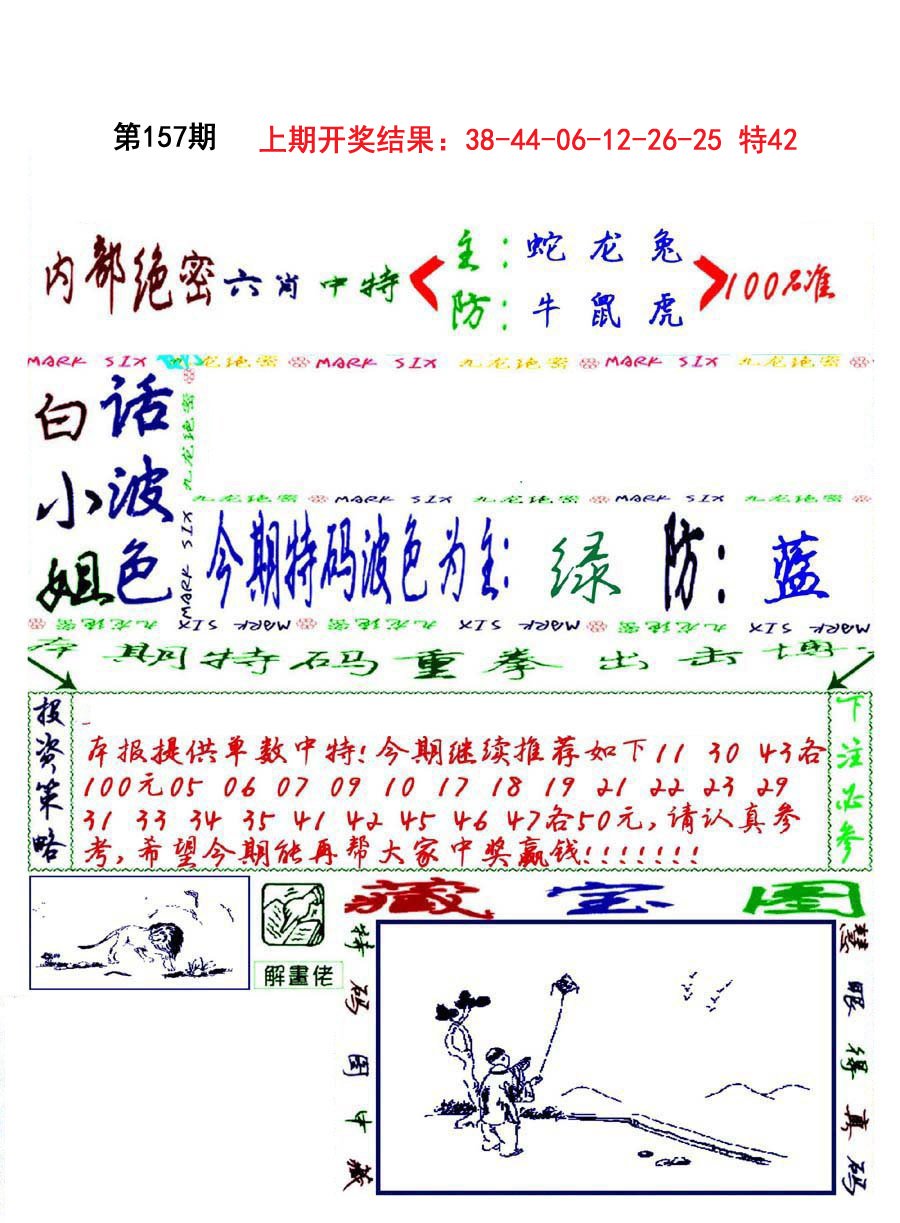 第157期 上期开奖结果：38-44-06-12-26-25 特42
内部绝密六肖中特 主：蛇龙兔 100%准
防：牛鼠虎
MARK SIX 九龙绝密 MARK SIX 九龙绝密 MARK SIX 九龙绝密
白小姐
话波色
九龙绝密 MARK SIX
九龙绝密 MARK SIX 九龙绝密 MARK SIX 九龙绝密
今期特码波色为主：绿 防：蓝
九龙绝密 MARK SIX 九龙绝密 MARK SIX 九龙绝密 MARK SIX
本期特码重拳出击博
投资策略
本报提供单数中特！今期继续推荐如下11 30 43各
100元05 06 07 09 10 17 18 19 21 22 23 29
31 33 34 35 41 42 45 46 47各50元，请认真参
考，希望今期能再帮大家中奖赢钱！！！！！！！
下注必参
解畫佬
藏宝图
特码图中藏
慧眼得真码